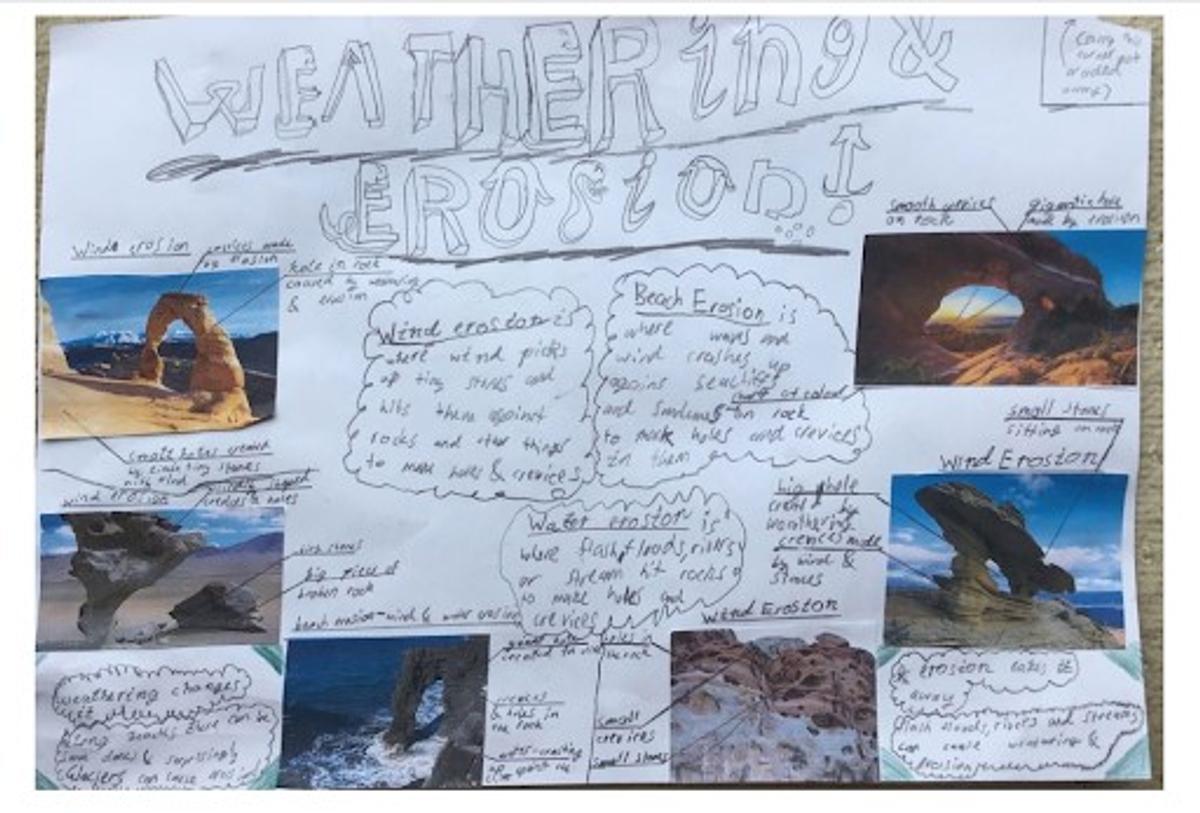 WEATHERING &
EROSION!
Wind erosion
crevices made
by erosion
hole in rock
caused by weathering
& erosion
small holes created
by tiny stones
with wind
wind erosion
crevices & holes
big piece of
broken rock
beach erosion-wind & water erosion
Wind erosion is
where wind picks
up tiny stones and
hits them against
rocks and other things
to make holes & crevices
Beach Erosion is
where waves and
wind crashes up
agains seacliffs
and sometimes on rock
to make holes and crevices
in them
Water erosion is
where flash floods, rivers
or stream hit rocks
to make holes and
crevices
smooth crevices
on rock
gigantic hole
made by erosion
small stones
sitting on rock
WIND EROSION
big hole
created by
weathering
crevices made
by wind &
stones
WIND EROSION
holes in
the rock
crevices
& holes in
the rock
water crashing
up against the
small
crevices
small stones
weathering changes
it
& erosion takes it
away
Glaciers can cause erosion
flash floods, rivers and streams
can cause weathering &
erosion